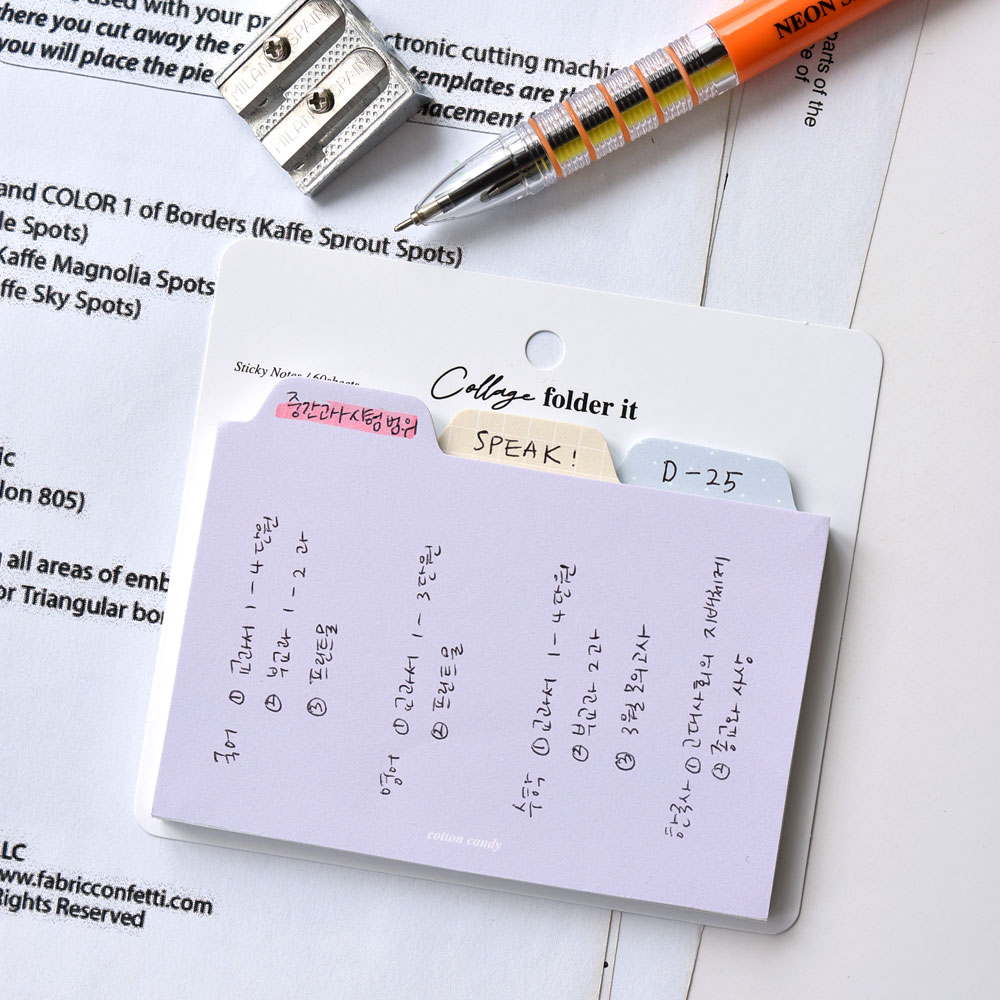 used with your pr
where you cut away the e
ctronic cutting machin
you will place the pie
templates are th
lacement
MILAN SPAIN
MILAN SPAIN
NEON
parts of the
e of
and COLOR 1 of Borders (Kaffe Sprout Spots)
le Spots)
Kaffe Magnolia Spots
ffe Sky Spots)
Sticky Notes / 60sheets
Collage folder it
중간고사 시험 범위
SPEAK!
D-25
국어 ① 교과서 1-4 단원
② 부교과 1-2 과
③ 프린트물
영어 ① 교과서 1-3 단원
② 프린트물
수학 ① 교과서 1-4 단원
② 부교과 2과
③ 3월 모의고사
한국사 ① 고대사회의 지배체제
② 종교와 사상
cotton candy
ic
lon 805)
all areas of emb
or Triangular bor
LLC
www.fabricconfetti.com
Rights Reserved